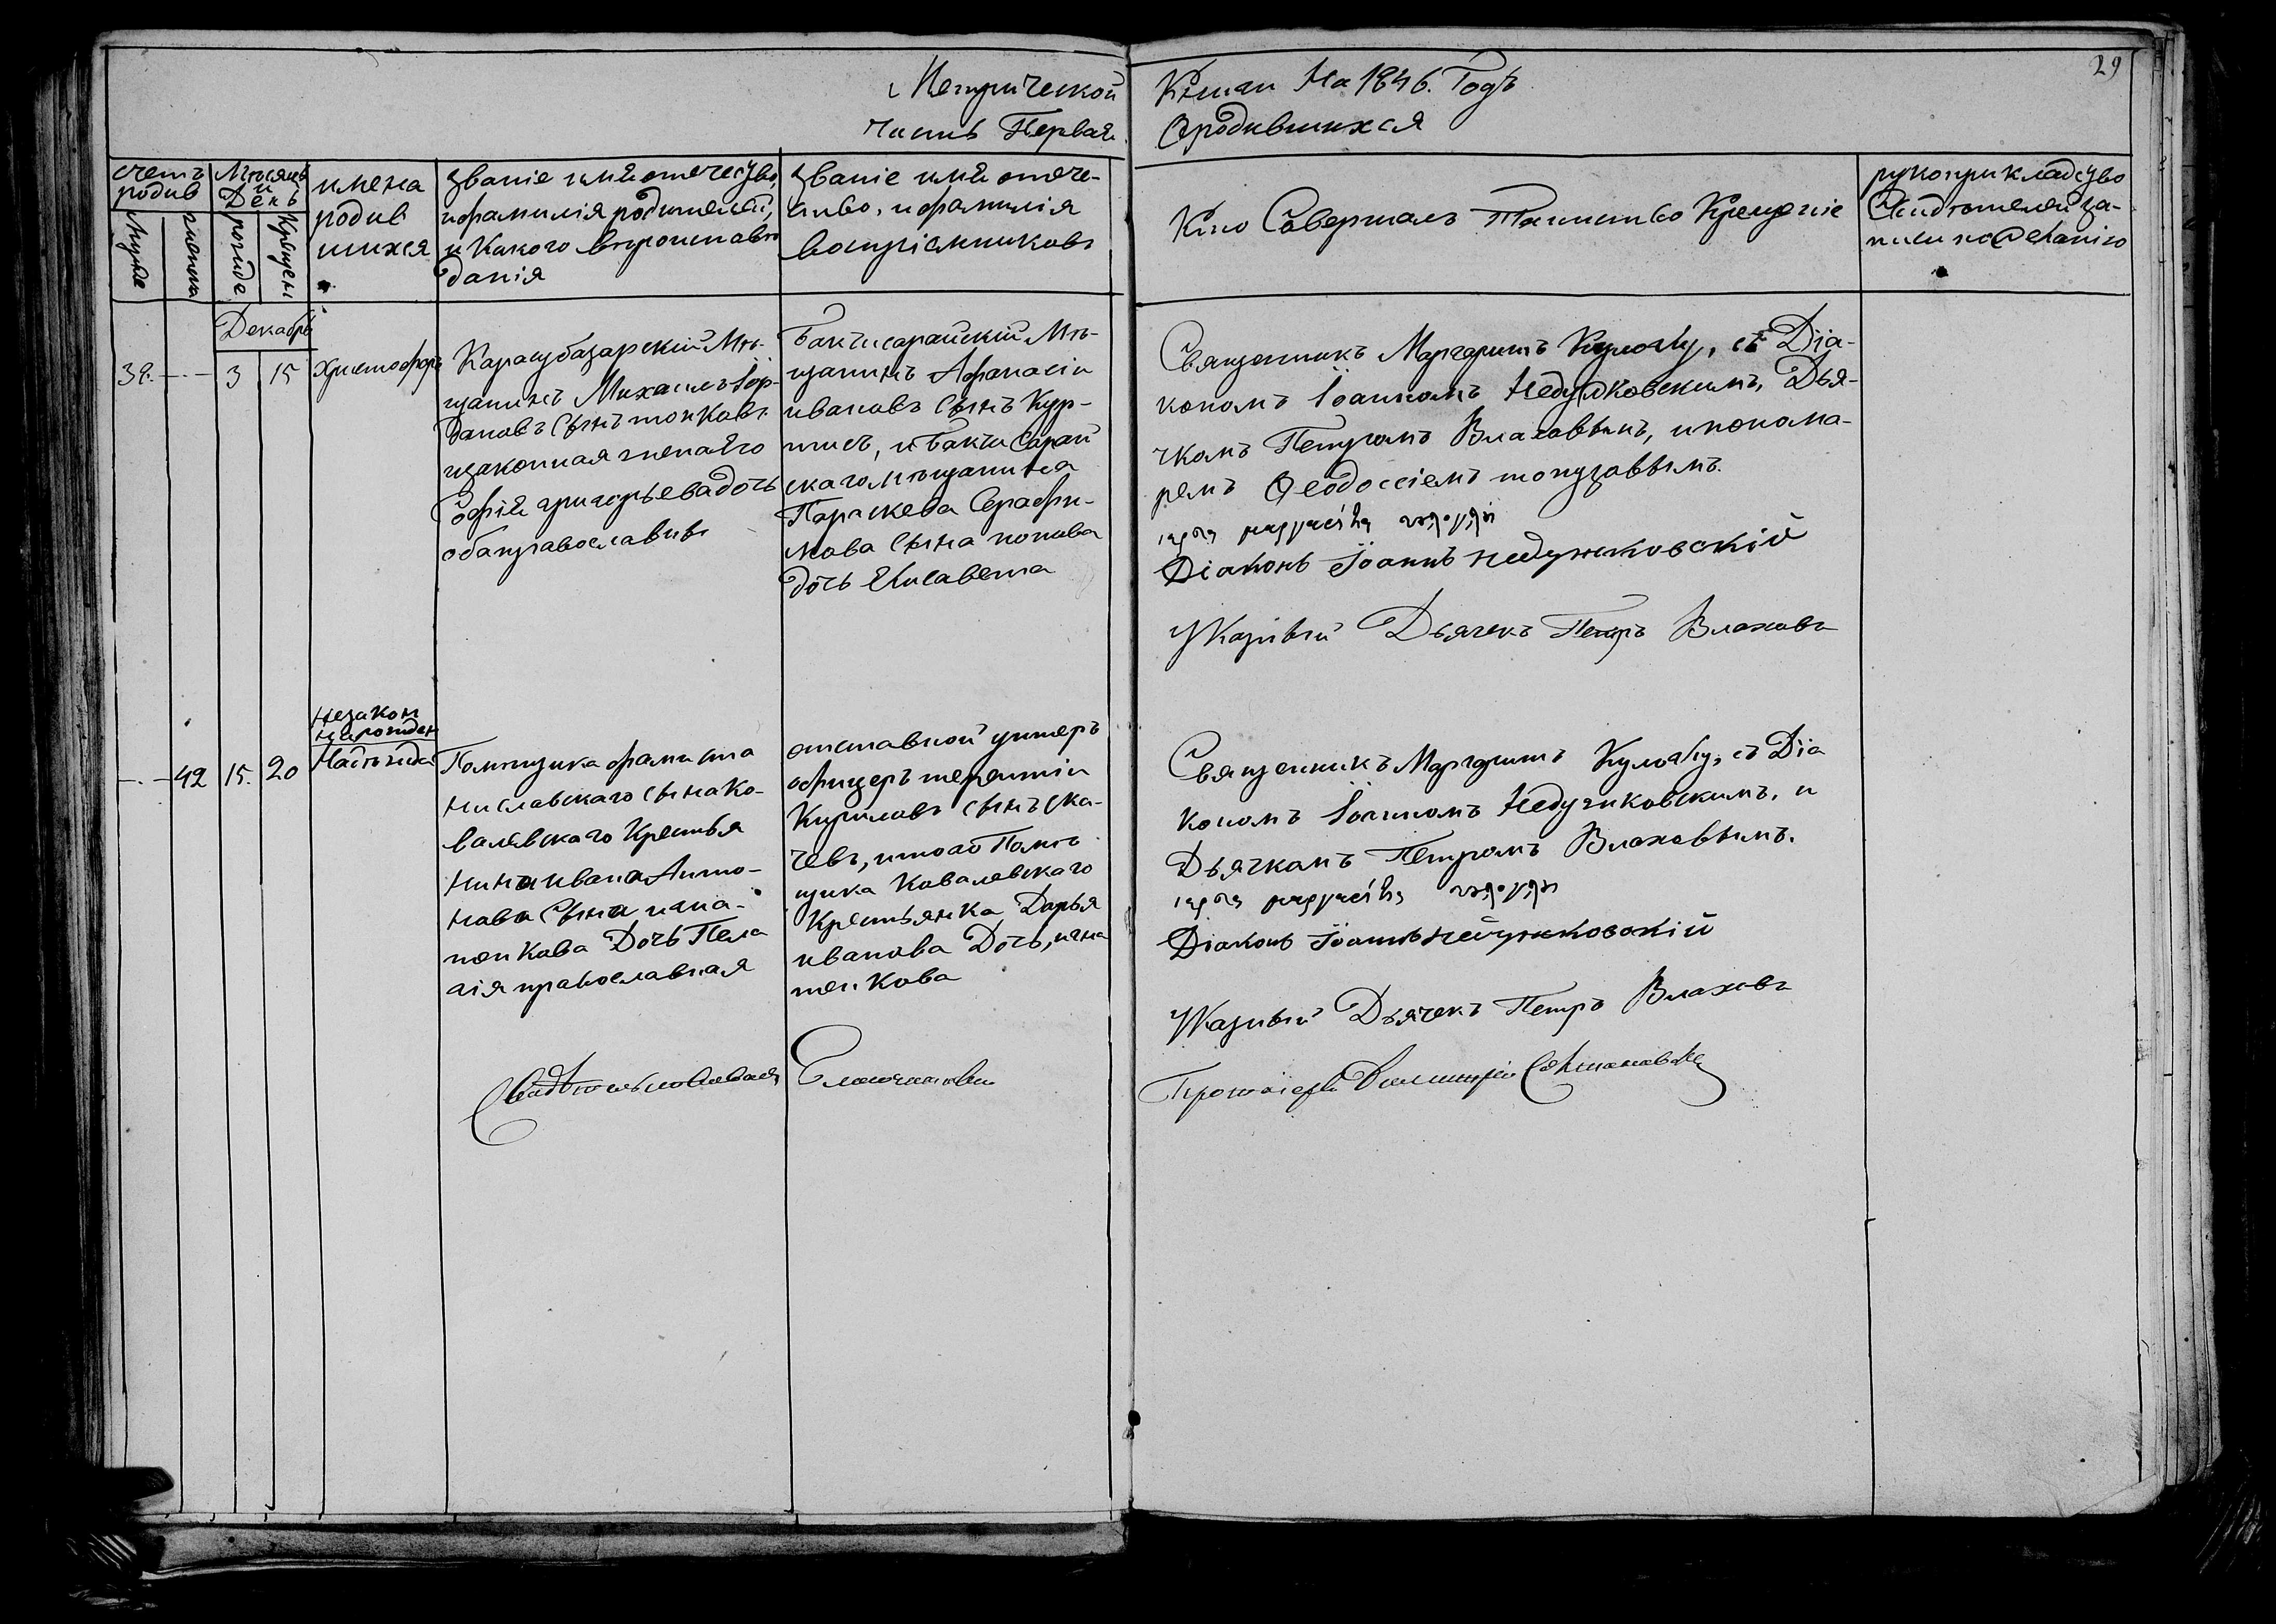 Метрической Книги На 1846. Годъ
29
Часть Первая. О родившихся
счетъ родив
Мужеска
женска
Мѣсяцъ и День
рожде
Крещені
имена
родив
шихся
званіе имя отечество,
и фамилія родителей,
и Какого вѣроисповѣ
данія
званіе имя отече-
ство, и фамилія
воспріемниковъ
Кто Совершалъ Таинство Крещеніе
рукоприкладство
Свидѣтелей за-
писи по желанію
Декабрь
39. — 3 15 Христофоръ
Карасубазарскій Мѣ-
щанинъ Михаилъ Іор-
дановъ Сынъ топковъ
изаконная жена его
Софія григорьева дочь
оба православны
Бахчисарайскій Мѣ-
щанинъ Афанасіи
ивановъ Сынъ Кур-
тисъ, и Бакчи Сарай
скаго мѣщанина
Параскева Серафи-
мова Сына попова
дочь Елисавета
Священникъ Маргаритъ съ Діа-
кономъ Іоанномъ Недужковскимъ, Дья-
чкомъ Петромъ Влаховымъ, и понома-
ремъ Ѳеодоссіемъ топузовымъ.
Діаконъ Іоаннъ недужковскій
Указный Дьячекъ Петръ Влаховъ
Незакон
норожден
— 42 15. 20 Надѣжда
Помѣщика франиста
ниславскаго сына Ко-
валевскаго Крестья
нина ивана Анто-
нова Сына
Дочь Пела
гія православная
отставной унтеръ
офицеръ терентіи
Кириловъ Сынъ ска-
чевъ, и того Помѣ
щика Ковалевскаго
Крестьянка Дарья
иванова Дочь,
Священникъ Маргаритъ съ Діа
кономъ Іоанномъ Недужковскимъ, и
Дьячкомъ Петромъ Влаховымъ.
Діаконъ Іоаннъ недужковскій
Указный Дьячекъ Петръ Влаховъ
Свидѣтельствовалъ
Протоіерей Димитрій